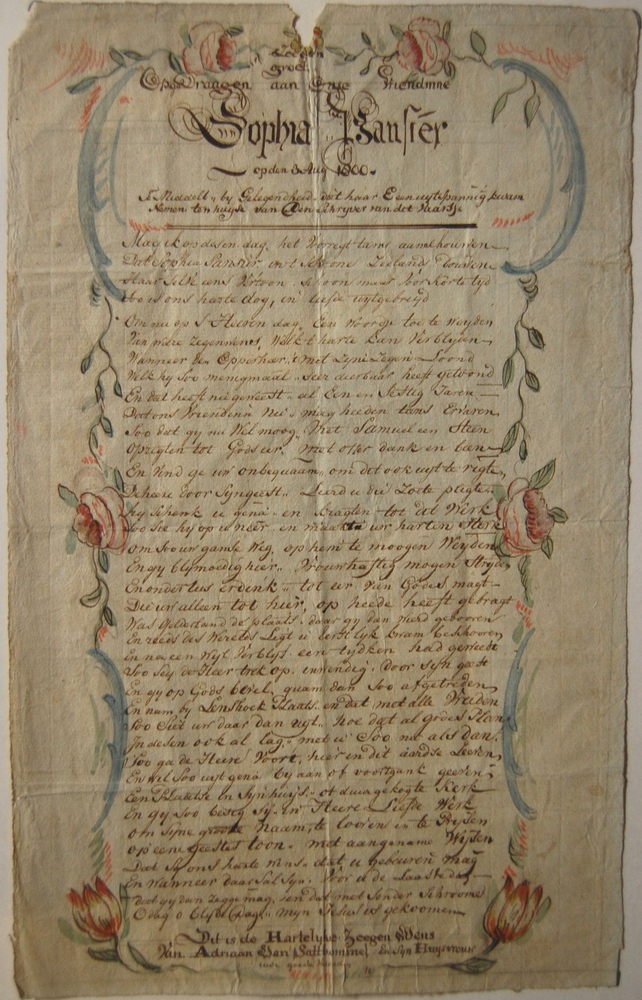 Zeegen
groet
Opgedraagen aan Onse Vriendinne
Sophia Pansier
op den 3 Aug 1800.
by Gelegendheid dat haar
Komen ten huyse van Den Schrijver van dit Vaarsje
Mag ik op desen dag, het Voorregt tans aanschouwen
Dat Sophia Pansier in't Schoone Zeelands Douwen
Haar Selk eens Vertoon. Schoon maar voor korte tijd
Soo is ons harte dog, in liefde uytgebreyd
Om nu op S Heeren dag, Een Woordje toe te Weyden
Van ware Zegenwens, Welk't harte kan Verblyden
Wanneer den Opperheer, 't met Zyne Zegen Loond
Welk hy Soo menigmaal Seer dierbaar heeft getoond
En dat heeft nu geweest al Een en Sestig Jaren
Dat ons Vriendinn Nu's mag heeden tans Ervaren
Soo dat gy nu Wel moog, Met Samuel een Steen
Opregten tot Gods eer, met offer dank en been
En Vind ge uw onbequaam om dit ook uyt te rigte
door Syn geest Leerd u die Zoete pligte
hy Schenk u gena en kragten tot dit Werk
Soo See hy op u neer en maakte uw harten Sterk
om Soo uw ganse Weg, op hem te moogen Weyden
En gy blymoedig heer Vrouwhaftig mogen Stryden
En ondertus Erdenk tot uw Van Godes magt
Die uw alleen tot hier, op heede heeft gebragt
Was Gelderland de plaats daar gy dan Zierd gebooren
En reeds des Werelds Ligt u eerstlyk kwam beschooren
En na een Wyl Verblyf een tydken had geweest
Soo Seij de Heer trek op inwendig door Syn geest
En gy op Gods bevel, quam dan Soo afgetreden
En nam by Lenshoek Plaats en dat met alle Vreeden
Soo Siet uw daar dan uyt hoe dat al godes Hem
In desen ook al lag met u Soo nu als dan
Soo ga de Heere Voort, hier in dit aardse Leeven
En wil Soo uyt gena by aan of voortgank geeven
Een Plaatse in Syn huys ot duurgekogte Kerk
En gy Soo besig Sy in Heere Liefde Werk
Om Syne groote Naam, te looven en te Prysen
op eene geestes toon met aangename Wysen
Dat Sy ons harte Wens dat u gebeuren mag
En Wanneer daar Sal Syn Voor u de Laaste dag
dat gy dan Zegge mag, en dat met Sonder Schroomen
Odag o blyde Dag Myn Jesus is gekoomen
Dit is de Hartelyke Zeegen Wens
Van Adriaan Van Sattbommel En Syn Huysvrouw